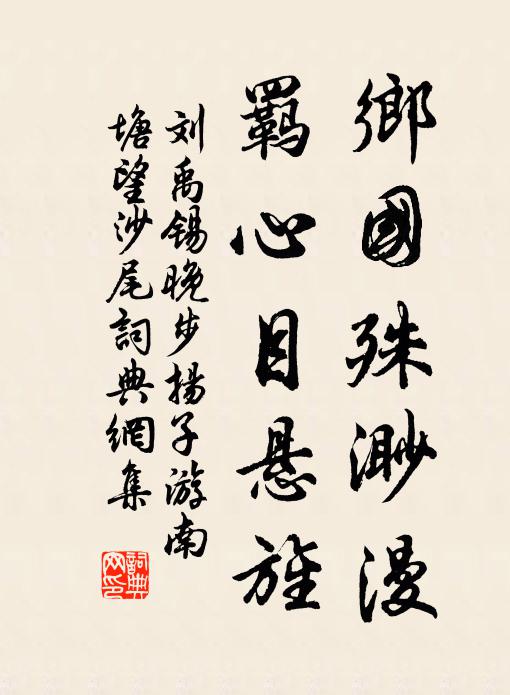 鄉國殊渺漫
羈心目悬旌
刘禹锡晚步揚子游南
塘望沙尾詞典網集
詞典
网印